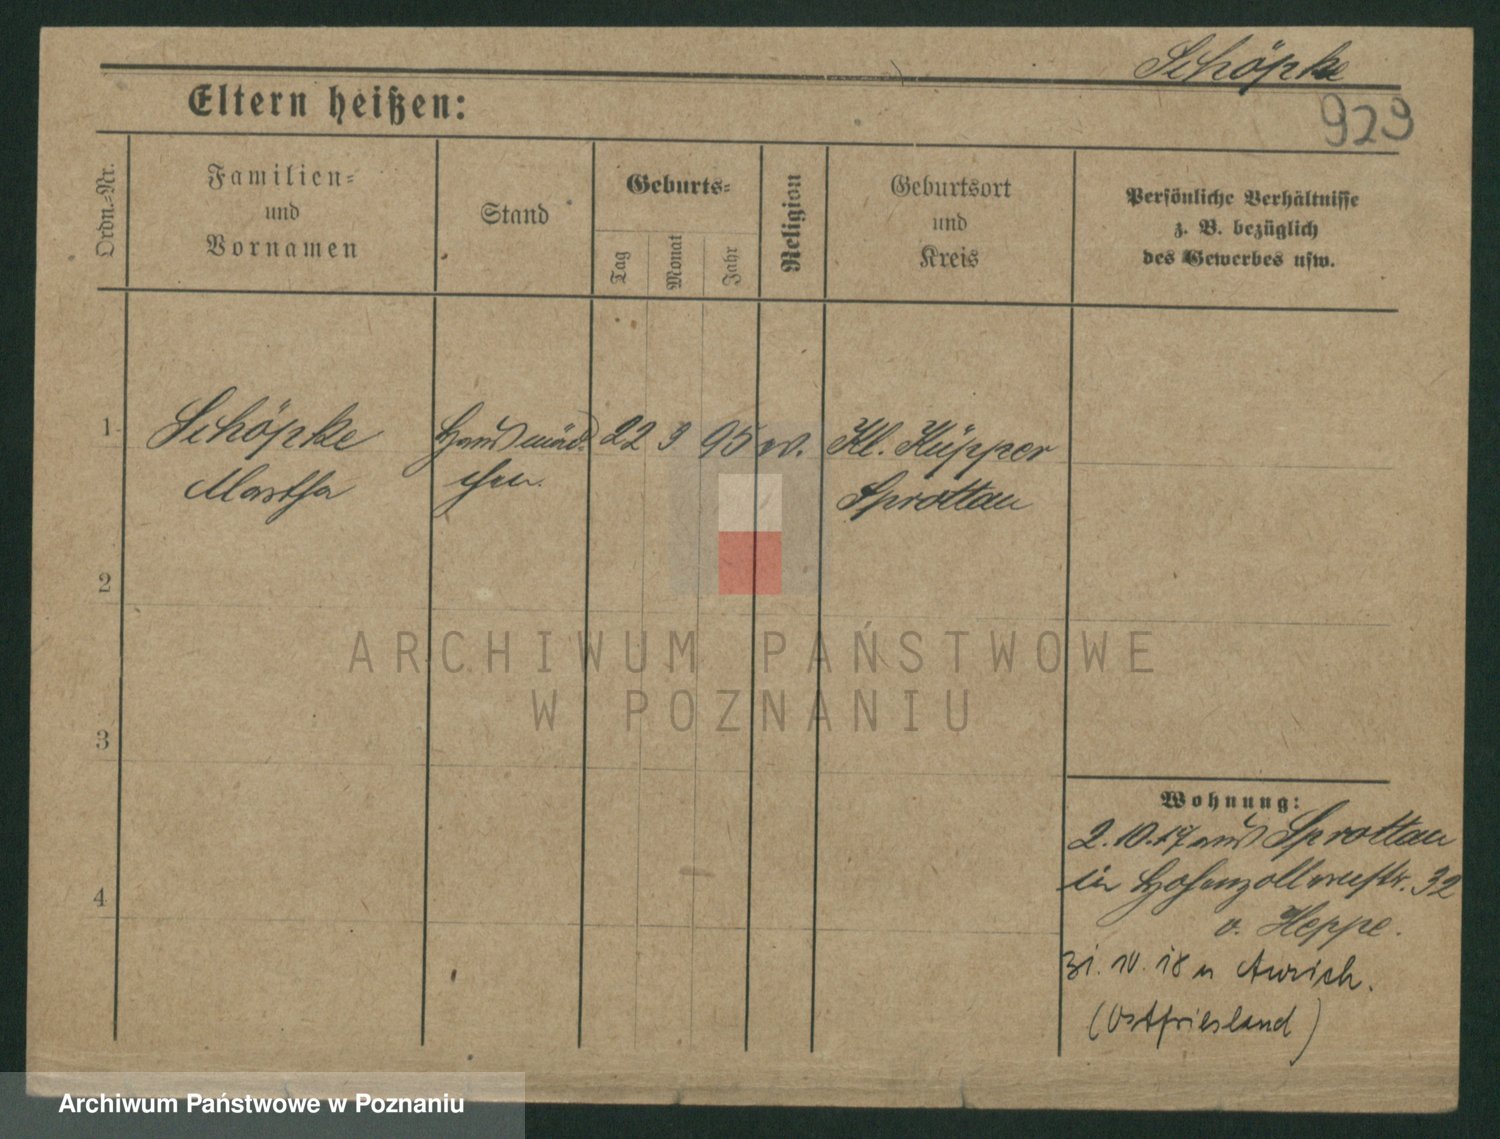 Schöpke
Eltern heißen:
929
Ordn.-Nr.
Familien-
und
Vornamen
Stand
Geburts-
Tag
Monat
Jahr
Religion
Geburtsort
und
Kreis
Persönliche Verhältnisse
z. B. bezüglich
des Gewerbes usw.
1
Schöpke
Martha
Hausmäd-
chen.
22 3 95
Kl. Küpper
Sprottau
2
3
4
Wohnung:
2.10.17 aus Sprottau
in Hohenzollernstr. 32
v. Heppe.
31.10.18 n Aurich.
(Ostfriesland)
ARCHIWUM PAŃSTWOWE
W POZNANIU
Archiwum Państwowe w Poznaniu